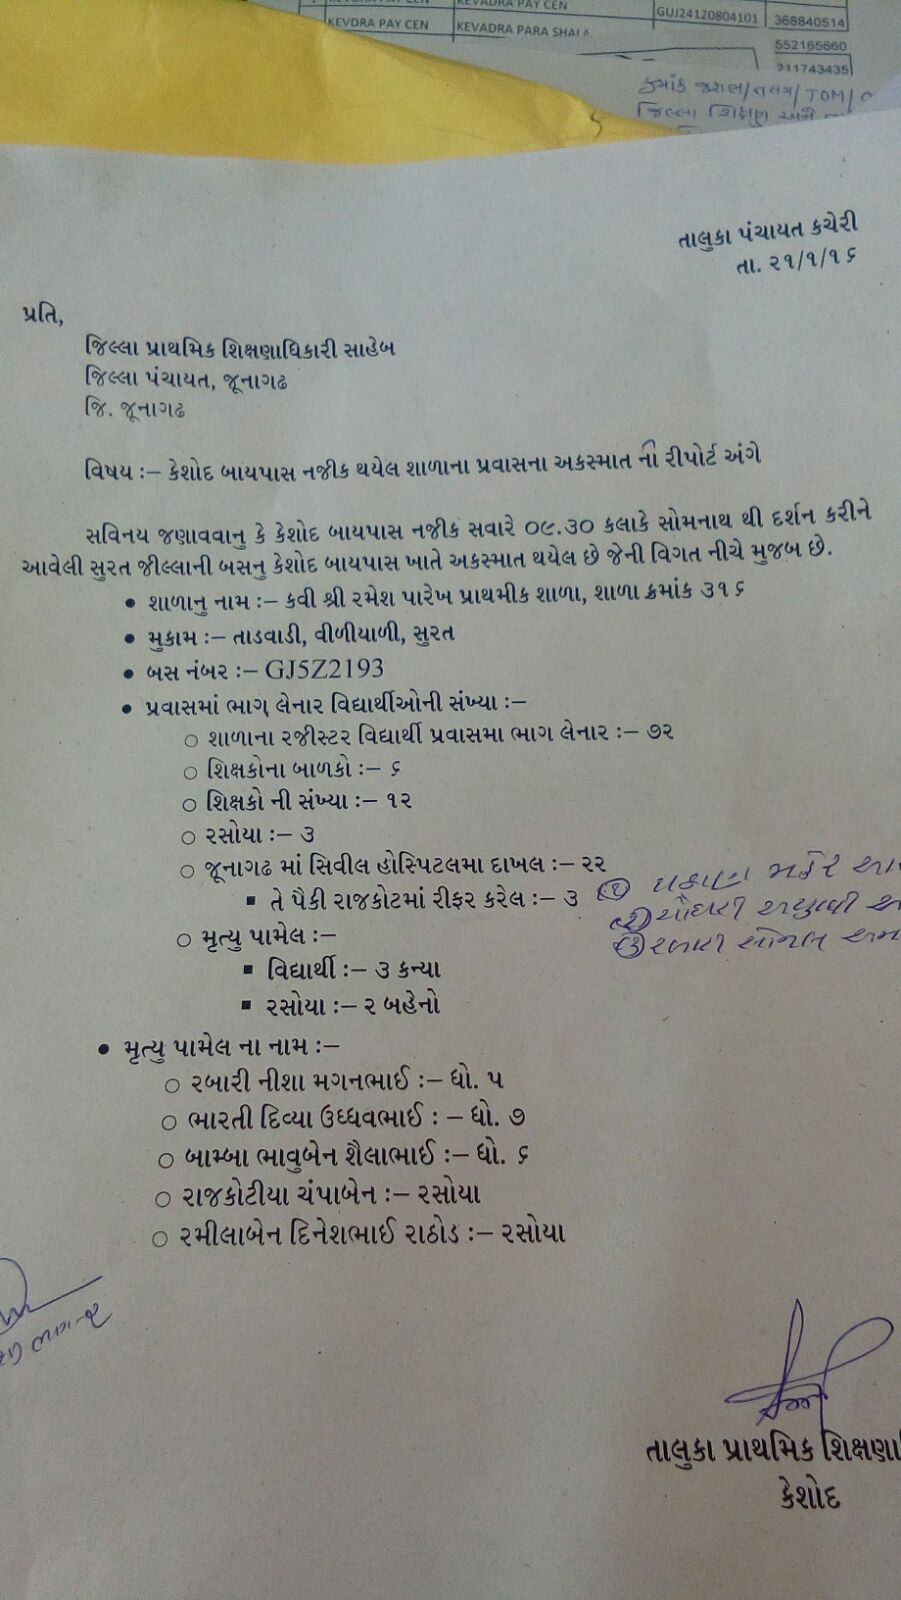 KEVDRA PAY CEN KEVADRA PAY CEN
KEVDRA PAY CEN KEVADRA PARA SHALA GUJ24120804101 368840514
552165660
211743435
ક્રમાંક જશલ/નલગ/TDM/
જિલ્લા શિક્ષણ અને
તાલુકા પંચાયત કચેરી
તા. ૨૧/૧/૧૬
પ્રતિ,
જિલ્લા પ્રાથમિક શિક્ષણાધિકારી સાહેબ
જિલ્લા પંચાયત, જૂનાગઢ
જિ. જૂનાગઢ
વિષય :– કેશોદ બાયપાસ નજીક થયેલ શાળાના પ્રવાસના અકસ્માત નો રીપોર્ટ અંગે
સવિનય જણાવવાનુ કે કેશોદ બાયપાસ નજીક સવારે ૦૯.૩૦ કલાકે સોમનાથ થી દર્શન કરીને
આવેલી સુરત જીલ્લાની બસનુ કેશોદ બાયપાસ ખાતે અકસ્માત થયેલ છે જેની વિગત નીચે મુજબ છે.
• શાળાનુ નામ :– કવી શ્રી રમેશ પારેખ પ્રાથમીક શાળા, શાળા ક્રમાંક ૩૧૬
• મુકામ :– તાડવાડી, વીળીયાળી, સુરત
• બસ નંબર :– GJ5Z2193
• પ્રવાસમાં ભાગ લેનાર વિદ્યાર્થીઓની સંખ્યા :–
○ શાળાના રજીસ્ટર વિદ્યાર્થી પ્રવાસમા ભાગ લેનાર :– ૭૨
○ શિક્ષકોના બાળકો :– ૬
○ શિક્ષકો ની સંખ્યા :– ૧૨
○ રસોયા :– ૩
○ જૂનાગઢ માં સિવીલ હોસ્પિટલમા દાખલ :– ૨૨
▪ તે પૈકી રાજકોટમાં રીફર કરેલ :– ૩ (૧)
(૨) ચૌધરી
(૩) રબારી
○ મૃત્યુ પામેલ :–
▪ વિદ્યાર્થી :– ૩ કન્યા
▪ રસોયા :– ૨ બહેનો
• મૃત્યુ પામેલ ના નામ :–
○ રબારી નીશા મગનભાઈ :– ધો. ૫
○ ભારતી દિવ્યા ઉધ્ધવભાઈ : – ધો. ૭
○ બામ્બા ભાવુબેન શૈલાભાઈ :– ધો. ૬
○ રાજકોટીયા ચંપાબેન :– રસોયા
○ રમીલાબેન દિનેશભાઈ રાઠોડ :– રસોયા
તાલુકા પ્રાથમિક શિક્ષણા
કેશોદ